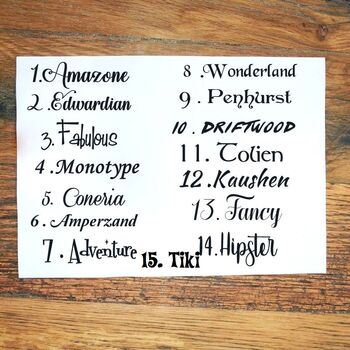 1.Amazone
2.Edwardian
3.Fabulous
4.Monotype
5. Coneria
6.Amperzand
7.Adventure
8.Wonderland
9.Penhurst
10.DRIFTWOOD
11.Tolien
12.Kaushen
13.Fancy
14.Hipster
15. Tiki